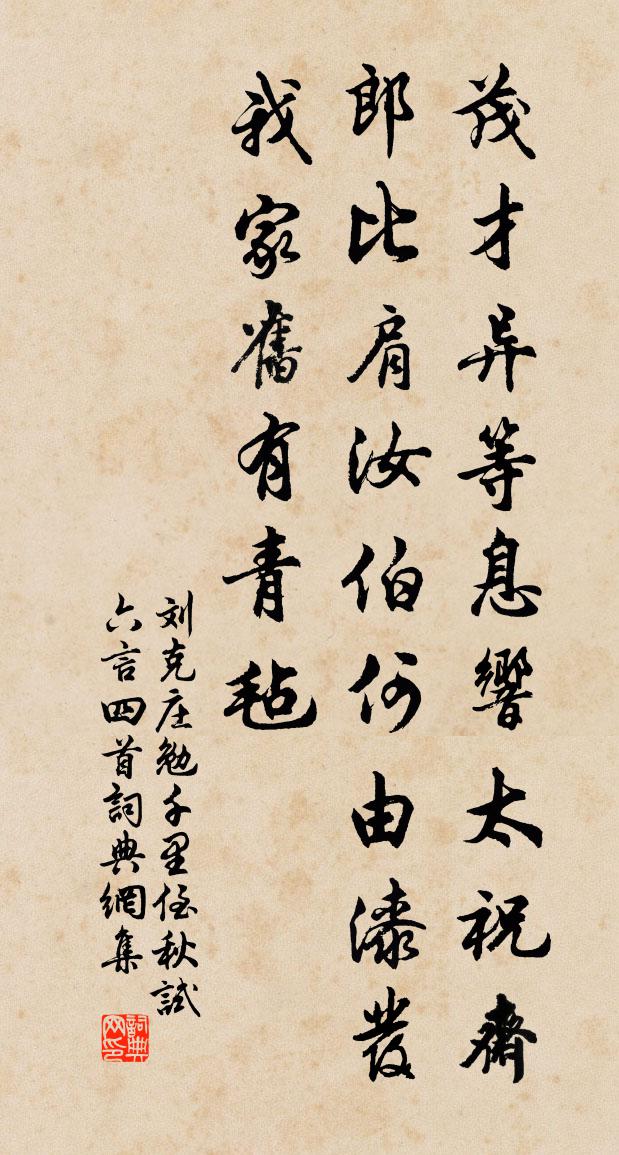 茂才异等息響太祝齋
郎比肩汝伯何由漆髮
我家舊有青毡
刘克庄勉千里侄秋試
六言四首詞典網集
詞典网印